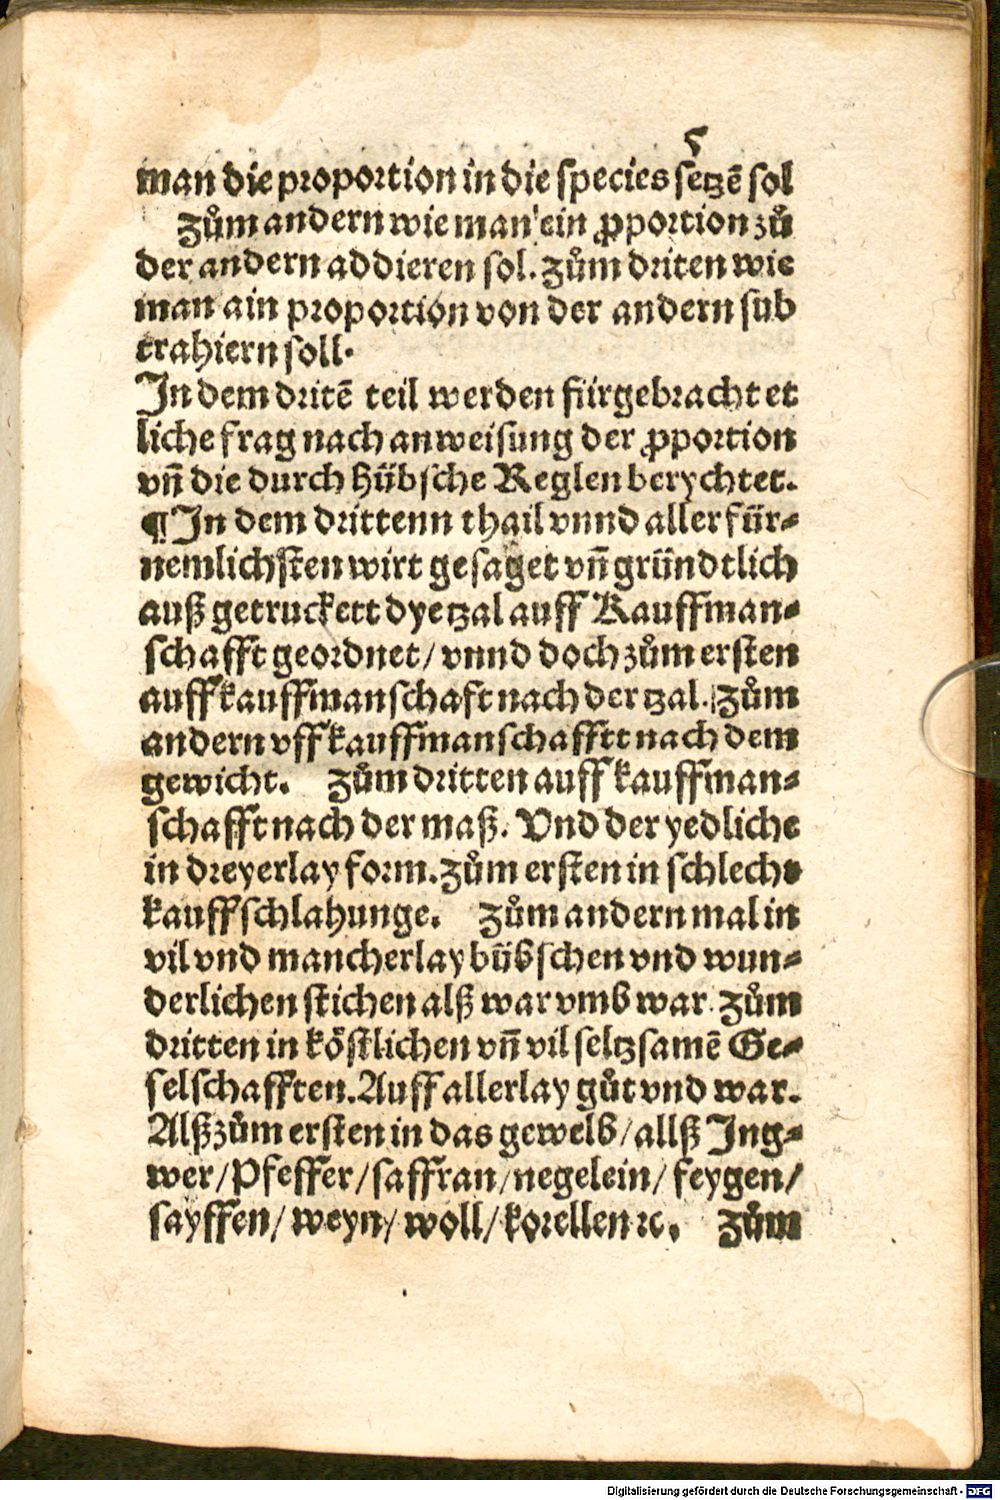 5
man die proportion in die species setzē sol
zům andern wie man ein ꝓportion zů
der andern addieren sol. zům driten wie
man ain proportion von der andern sub
trahiern soll.
In dem dritē teil werden fürgebracht et
liche frag nach anweisung der ꝓportion
vn̄ die durch hübsche Reglen berychtet.
¶ In dem drittenn thail vnnd aller für⸗
nemlichsten wirt gesaget vn̄ gründtlich
auß getruckett dye tzal auff Kauffman⸗
schafft geordnet/ vnnd doch zům ersten
auff kauffmanschaft nach der tzal. zům
andern vff kauffmanschafftt nach dem
gewicht. zům dritten auff kauffman⸗
schafft nach der maß. Vnd der yedliche
in dreyerlay form. zům ersten in schlecht
kauffschlahunge. zům andern mal in
vil vnd mancherlay büsschen vnd wun⸗
derlichen stichen alß war vmb war. zům
dritten in köstlichen vn̄ vil seltzsamē Ge⸗
selschafften. Auff allerlay gůt vnd war.
Alß zům ersten in das gewelb/ allß Ing⸗
wer/ Pfeffer/ saffran/ negelein/ feygen/
sayffen/ weyn/ woll/ korellen ꝛc. zům
Digitalisierung gefördert durch die Deutsche Forschungsgemeinschaft - DFG